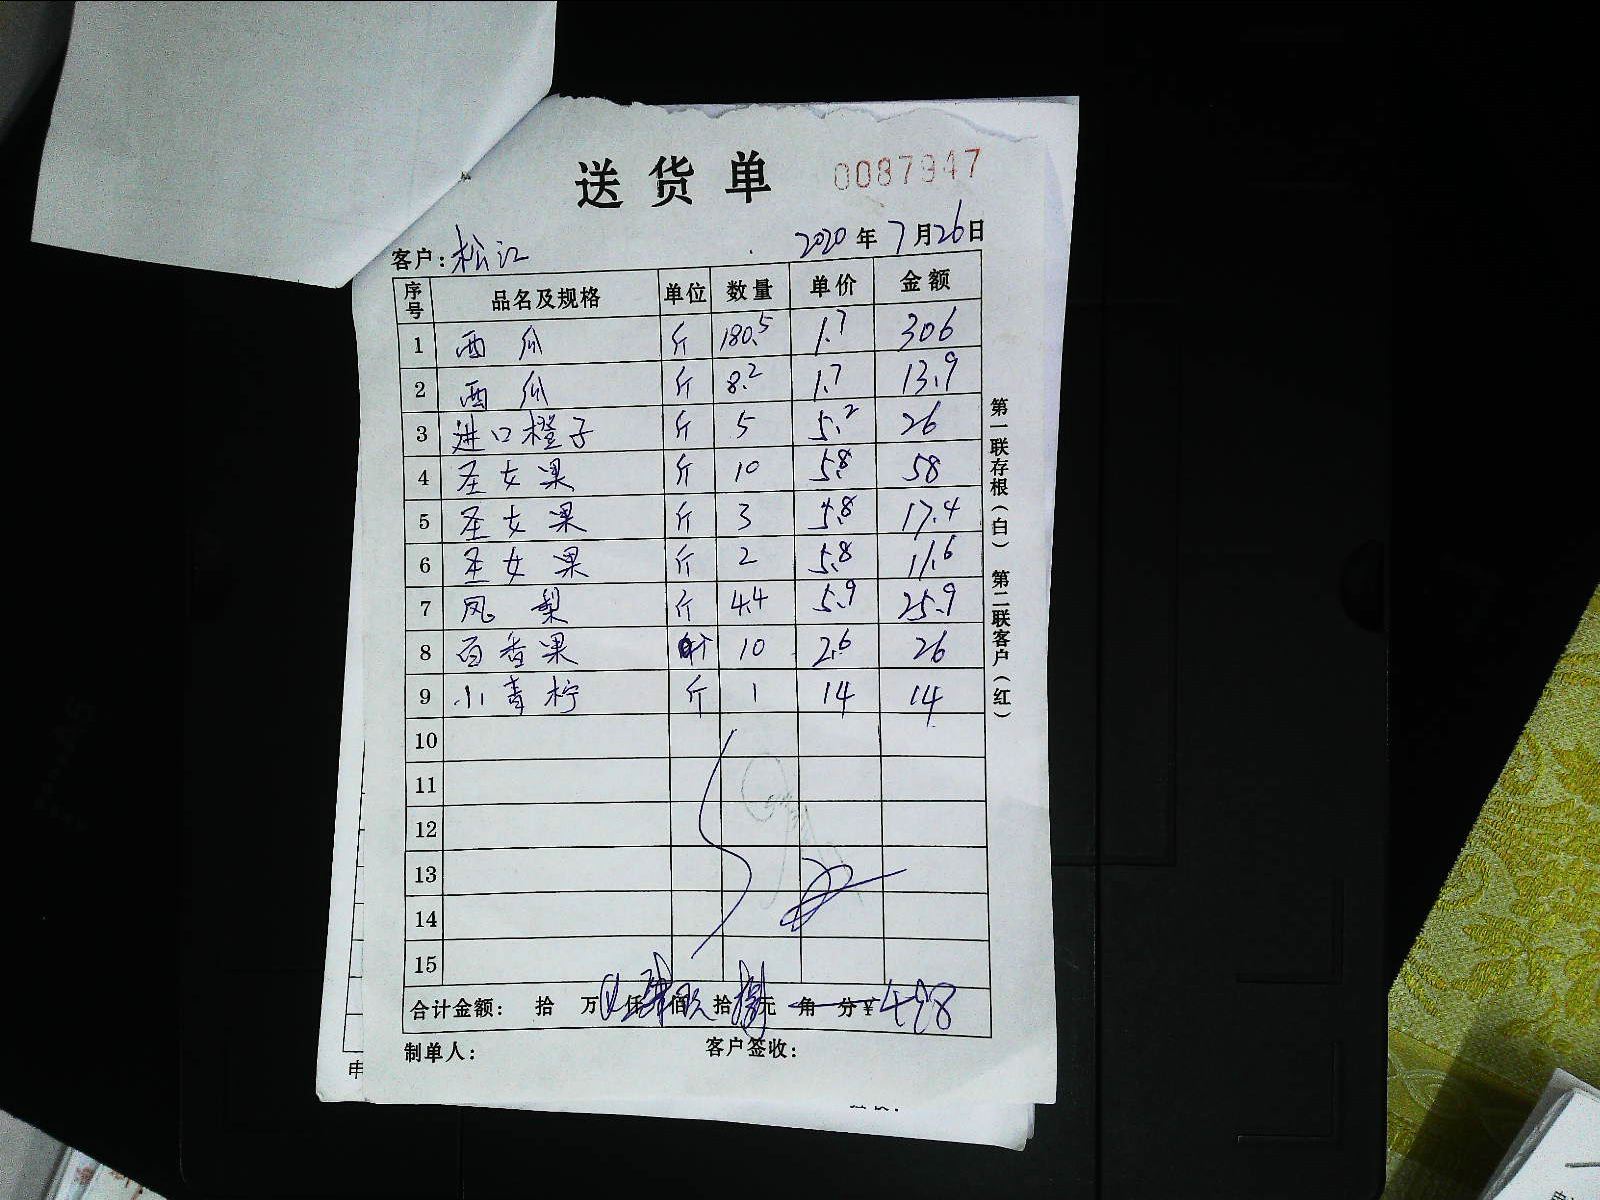 送货单 0087947
客户：松江 2020年7月26日
序号 品名及规格 单位 数量 单价 金额
1 西瓜 斤 180.5 1.7 306
2 西瓜 斤 8.2 1.7 13.9
3 进口橙子 斤 5 5.2 26
4 圣女果 斤 10 5.8 58
5 圣女果 斤 3 5.8 17.4
6 圣女果 斤 2 5.8 11.6
7 凤梨 斤 4.4 5.9 25.9
8 百香果 个 10 2.6 26
9 小青柠 斤 1 14 14
10
11
12
13
14
15
合计金额： 拾 万 仟 佰 拾 元 角 分 ¥498
制单人： 客户签收：
第一联存根（白） 第二联客户（红）
申